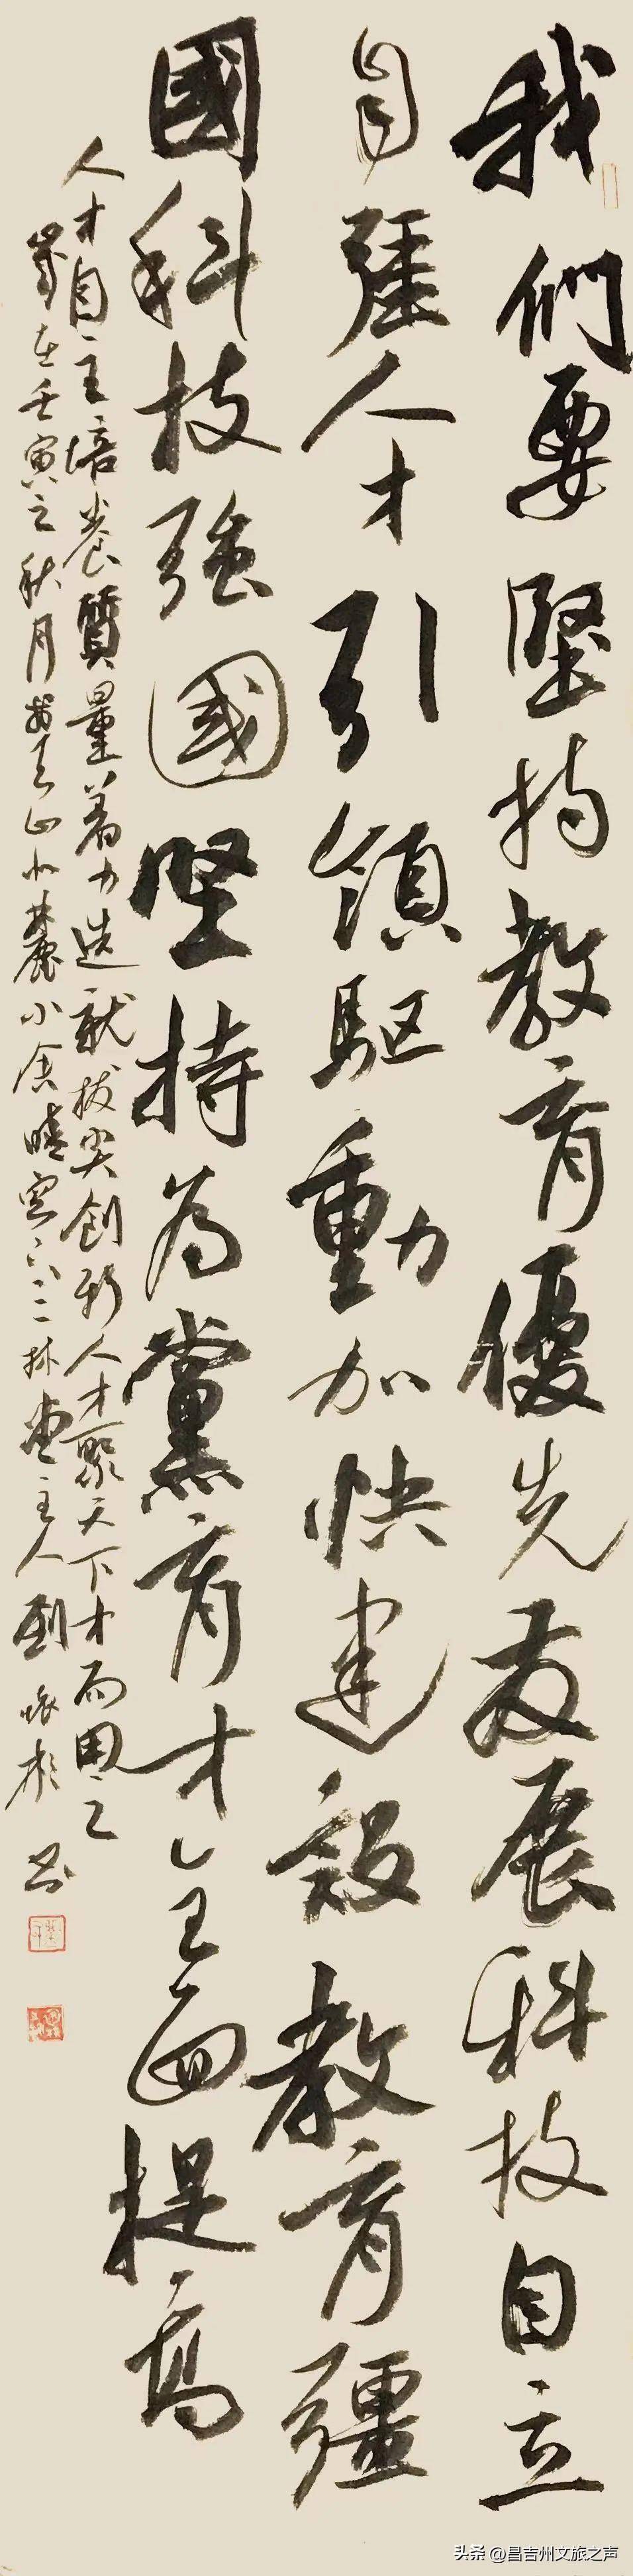 我們要堅持教育優先發展科技自立
自彊人才引領駆動加快建設教育彊
國科技強國堅持為黨育才全面提高
人才自主培养質量着力造就拔尖創新人才聚天下才而用之
歲在壬寅之秋月於天山北麓小舍晴窗下二林堂主人劉書
头条 @昌吉州文旅之声